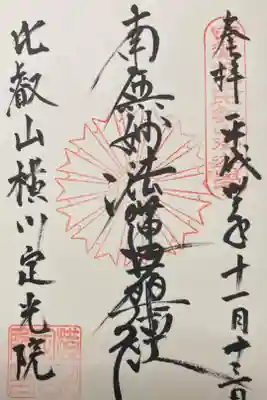 奉拝 平成年十一月十二日
南無妙法蓮華経
比叡山横川定光院